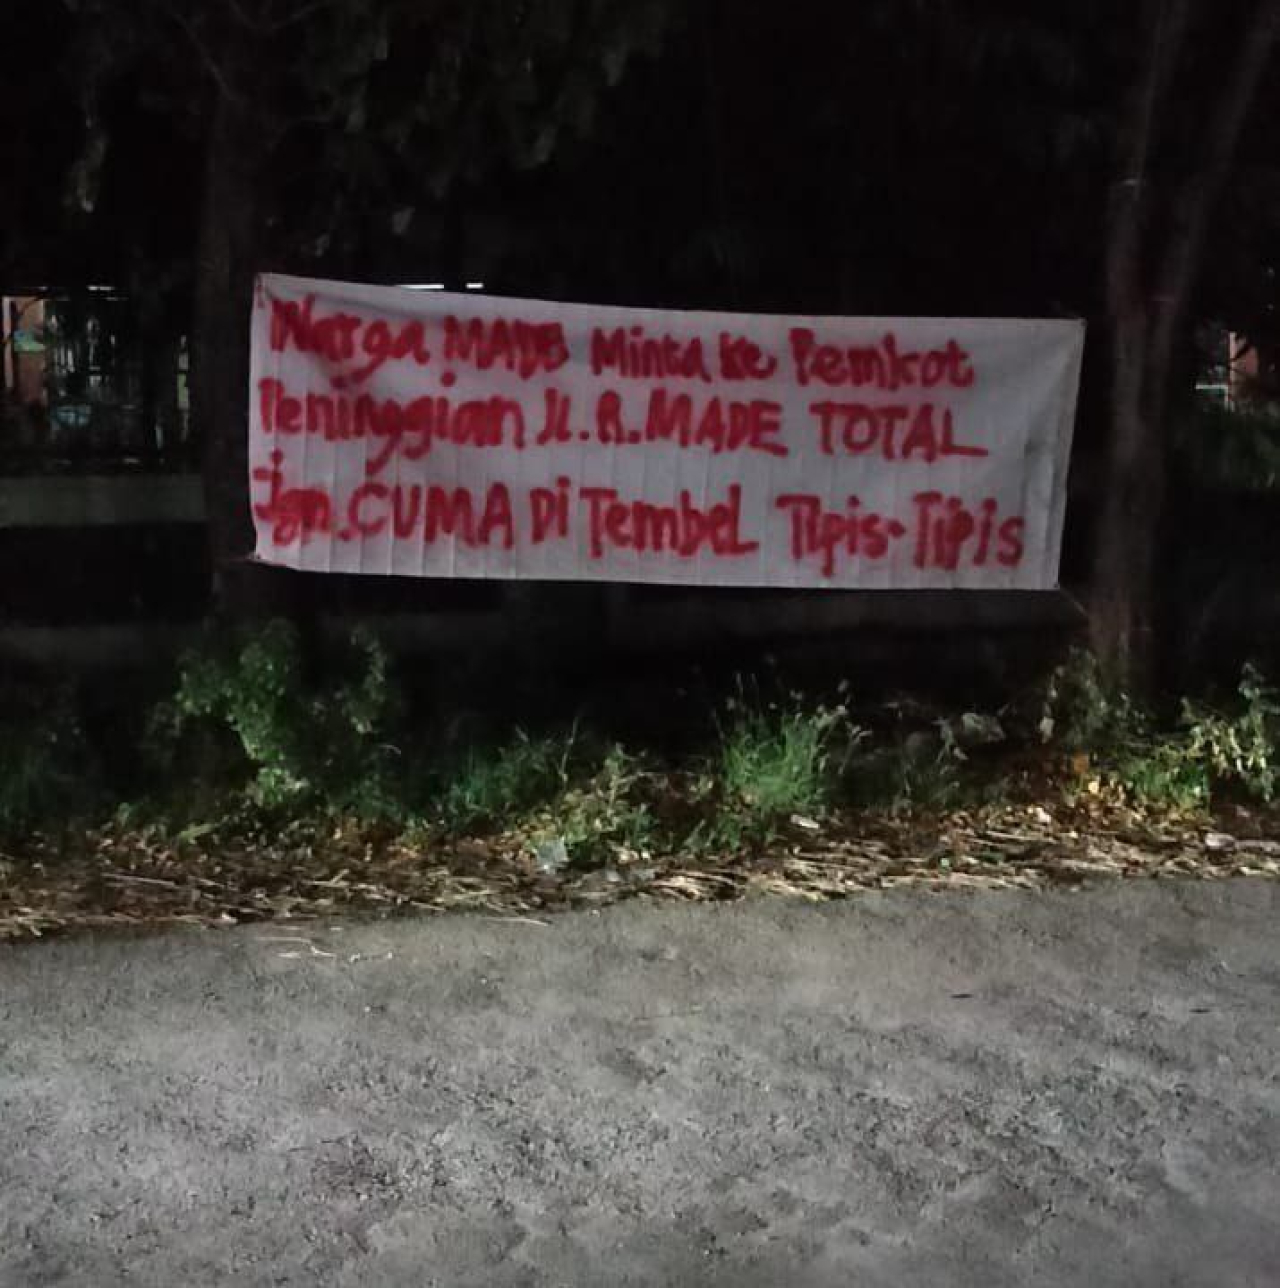 Warga MADE Minta Ke Pemkot
Peninggian Jl. R. MADE TOTAL
jgn. CUMA Di Tembel Tipis-Tipis